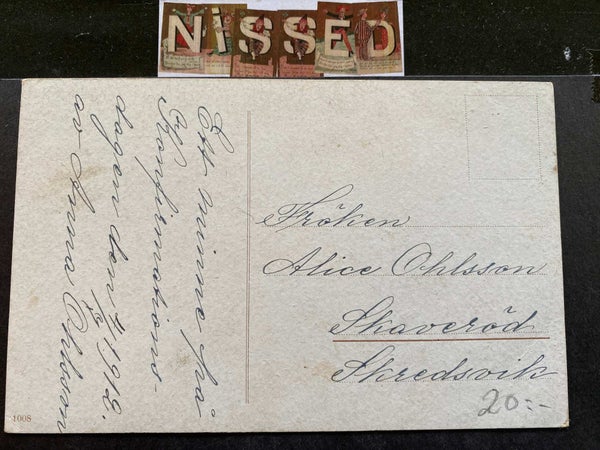 NiSSED
Ett minne på
Konfirmations-
dagen den 7/7 1912.
av Anna Ohlsson
Fröken
Alice Ohlsson
Skaveröd
Skredsvik
20:-
1008